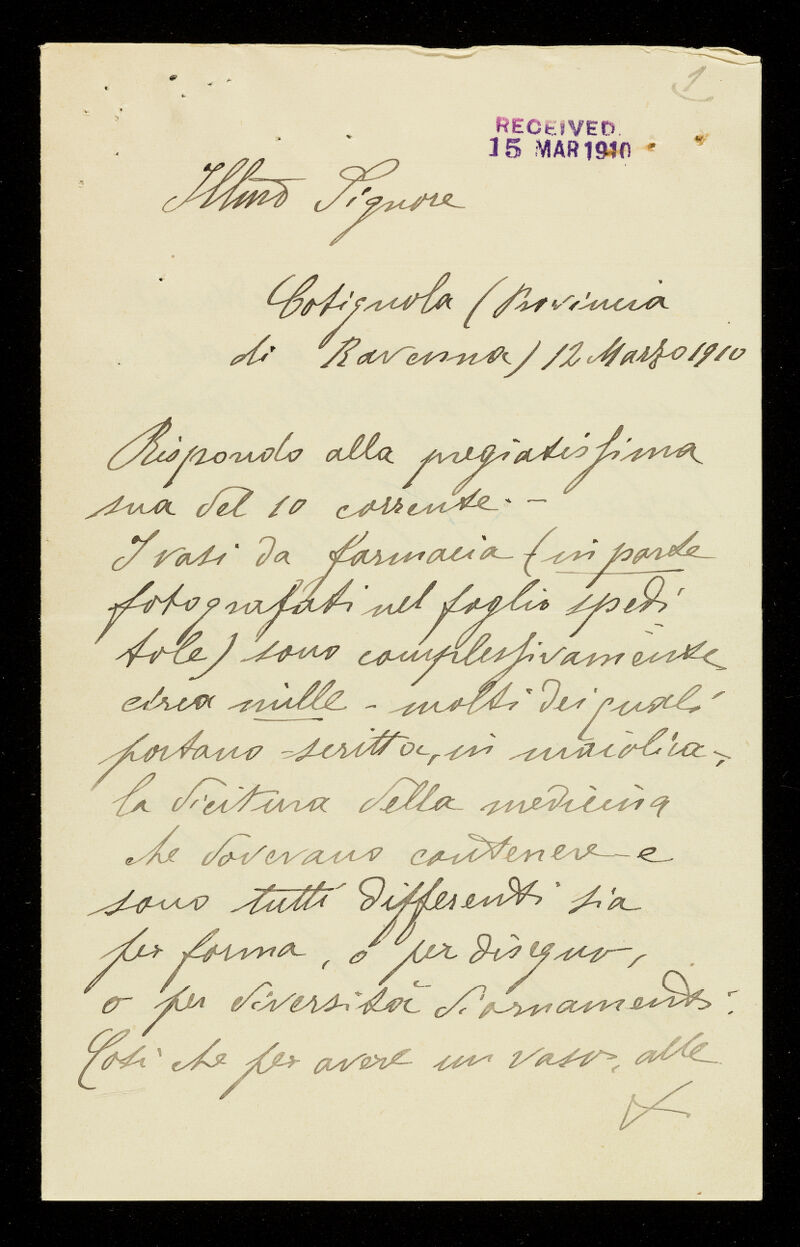 1
RECEIVED.
15 MAR 1910
Illmo Signore
Cotignola (Provincia
di Ravenna) 12 Marzo 1910
Rispondo alla pregiatissima
sua del 10 corrente. -
I vasi da farmacia (in parte
fotografati nel foglio spedi
tole) sono complessivamente
circa mille - molti dei quali
portano - scritta, in maiolica -,
la dicitura della medicina
che dovevano contenere - e
sono tutti differenti sia
per forma, o per disegno,
o per diversità d'ornamenti.
Così che per avere un vaso, alle